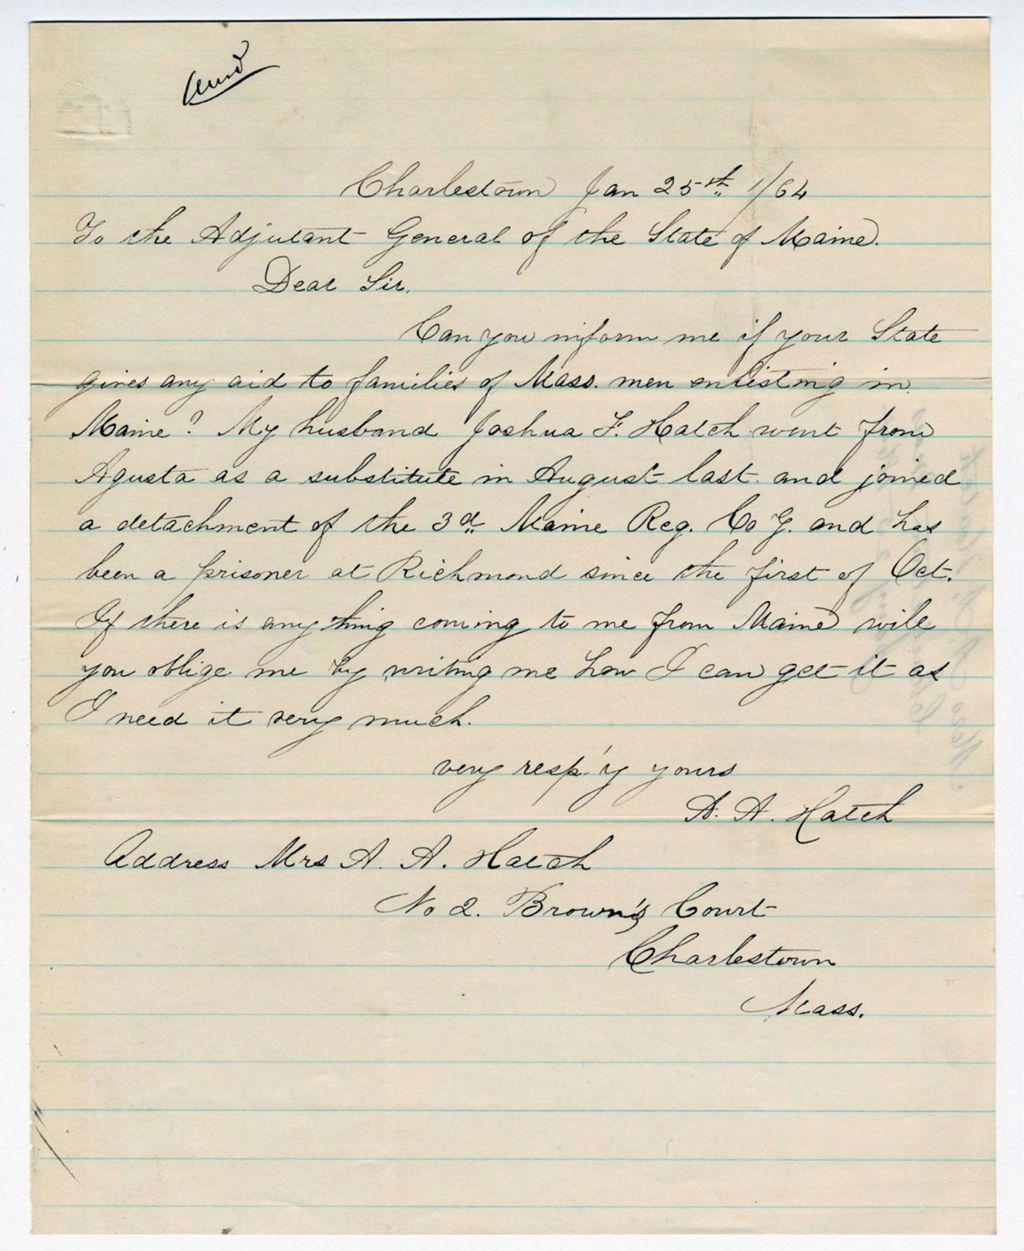 Ansd
Charlestown Jan 25th 1/64
To the Adjutant General of the State of Maine.
Dear Sir,
Can you inform me if your State
gives any aid to families of Mass. men enlisting in
Maine? My husband Joshua F. Hatch went from
Agusta as a substitute in August last. and joined
a detachment of the 3d. Maine Reg. Co G. and has
been a prisoner at Richmond since the first of Oct.
If there is any thing coming to me from Maine will
you oblige me by writing me how I can get it as
I need it very much.
very resp'y yours
A. A. Hatch
Address Mrs A. A. Hatch
No 2. Brown's Court
Charlestown
Mass.